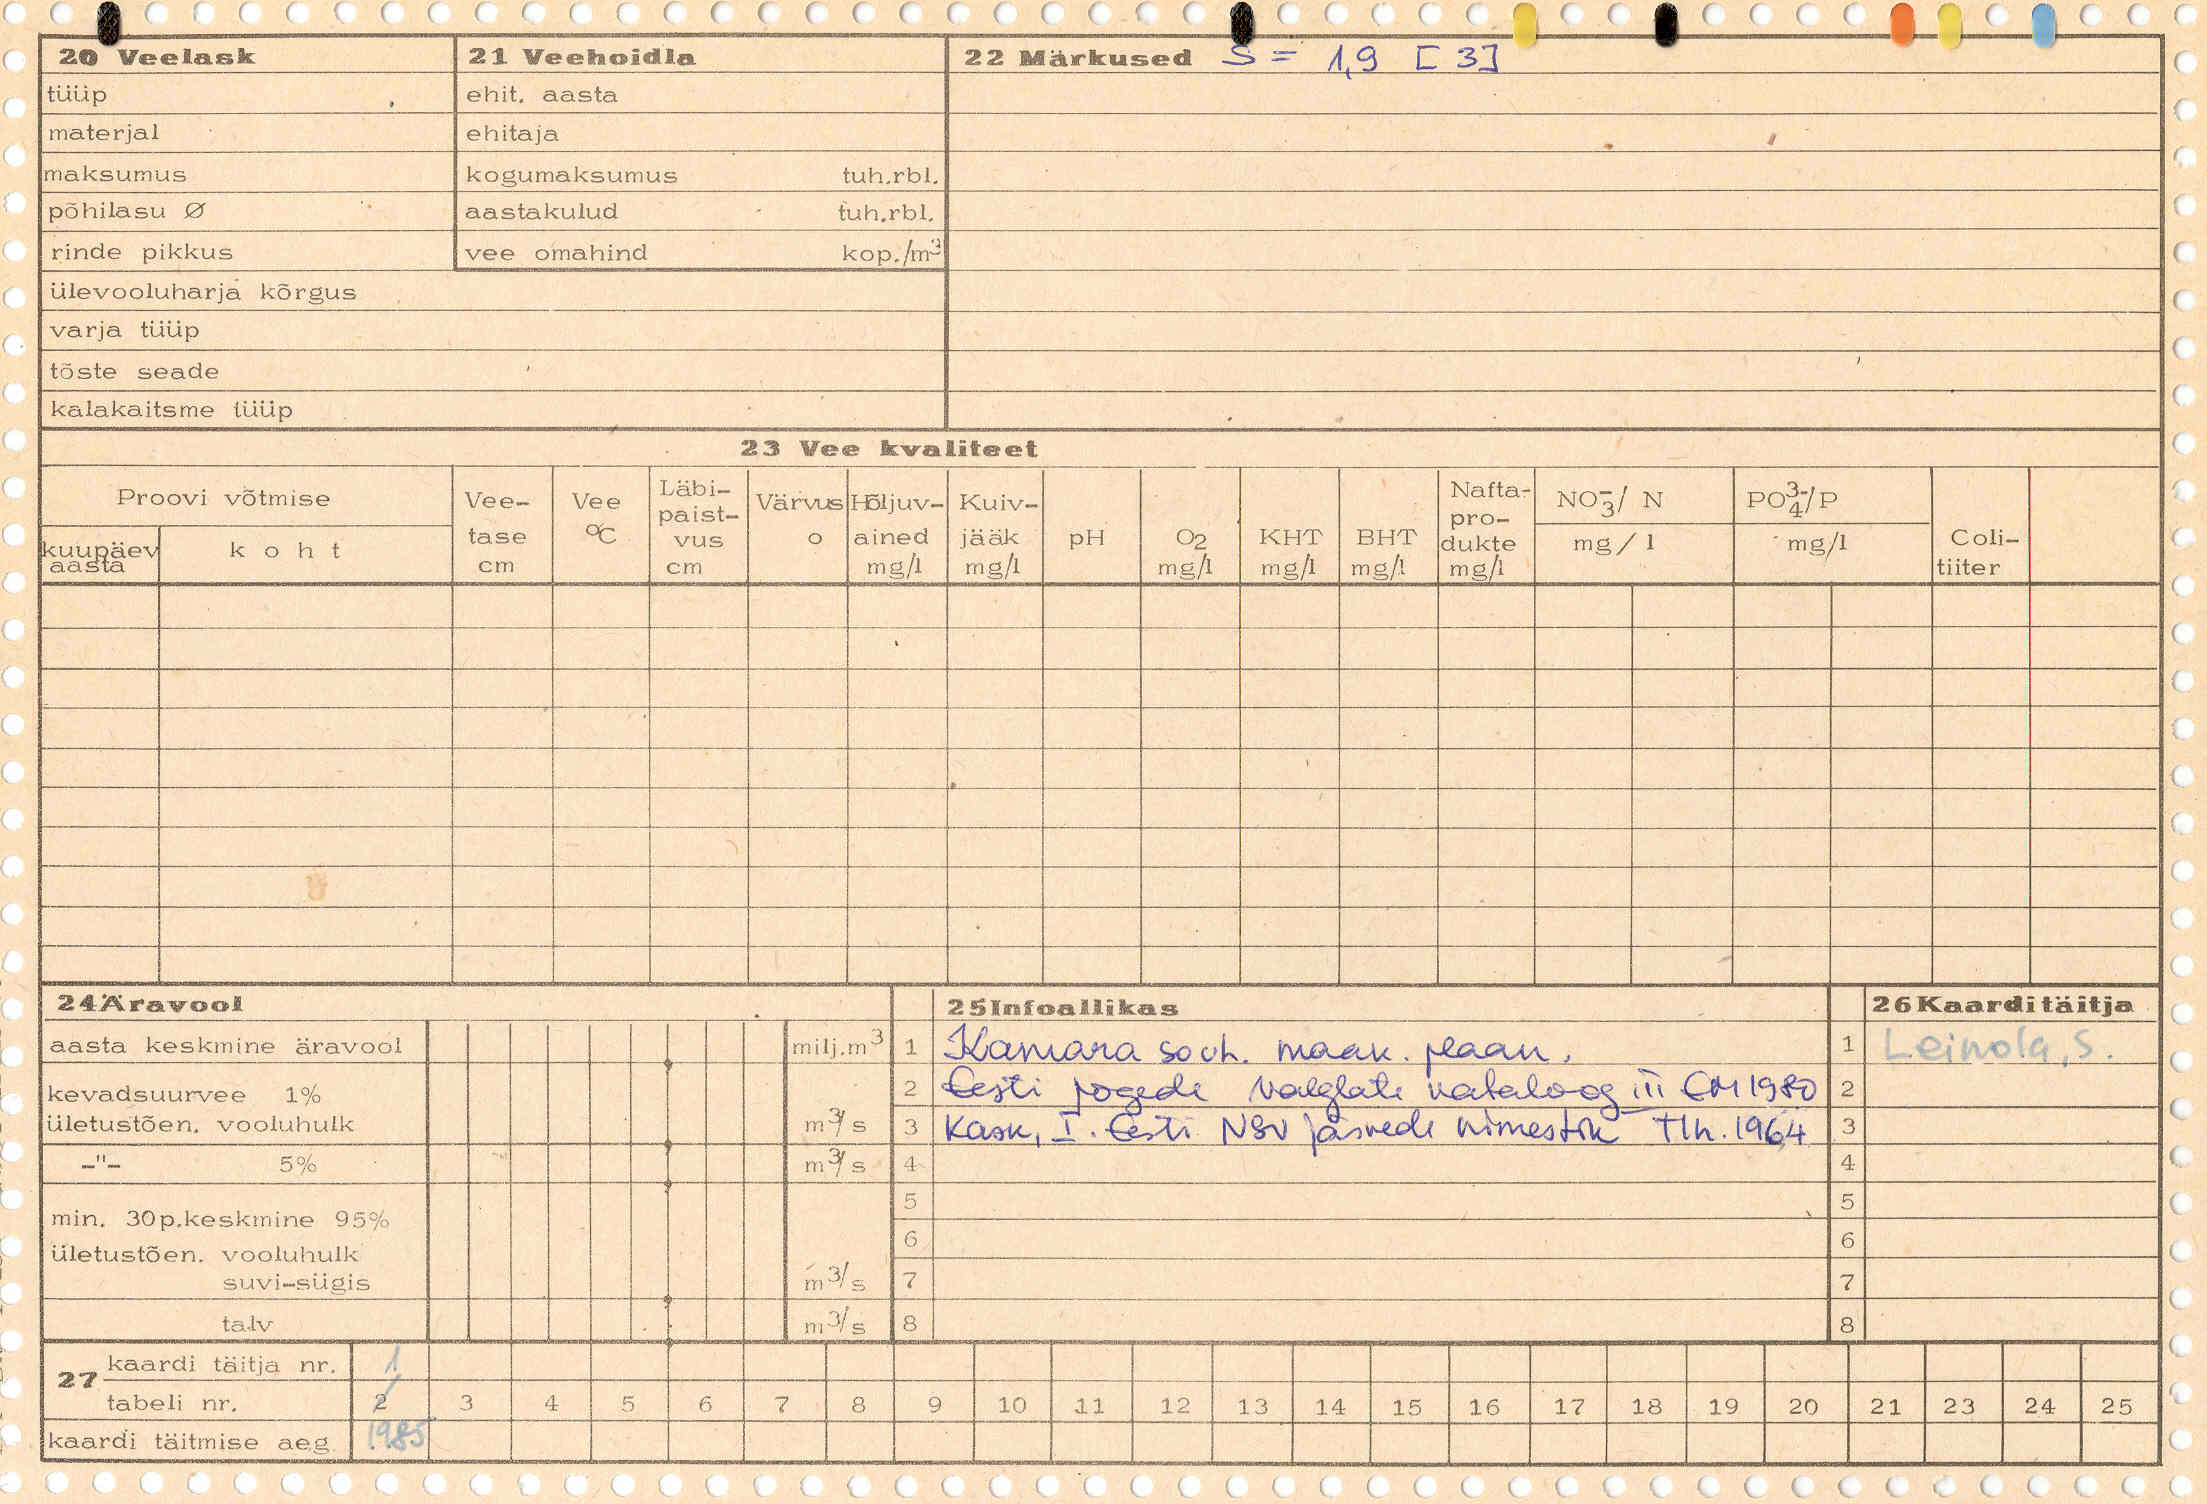 20 Veelask
tüüp
materjal
maksumus
põhilasu Ø
rinde pikkus
ülevooluharja kõrgus
varja tüüp
tõste seade
kalakaitsme tüüp
21 Veehoidla
ehit. aasta
ehitaja
kogumaksumus tuh.rbl.
aastakulud tuh.rbl.
vee omahind kop./m³
22 Märkused S = 1,9 [3]
23 Vee kvaliteet
Proovi võtmise
kuupäev aasta
koht
Vee-tase cm
Vee °C
Läbi-paist-vus cm
Värvus o
Hõljuv-ained mg/l
Kuiv-jääk mg/l
pH
O2 mg/l
KHT mg/l
BHT mg/l
Nafta-pro-dukte mg/l
NO3-/ N mg/l
PO4 3-/P mg/l
Coli-tiiter
24 Äravool
aasta keskmine äravool milj.m³
kevadsuurvee 1%
ületustõen. vooluhulk m³/s
-"- 5% m³/s
min. 30p.keskmine 95%
ületustõen. vooluhulk
suvi-sügis m³/s
talv m³/s
25 Infoallikas
1 Kamara sovh. maak. plaan.
2 Eesti jõgede valglate kataloog III EM 1980
3 Kask, I. Eesti NSV järvede nimestik Tln. 1964
4
5
6
7
8
26 Kaarditäitja
1 Leinola, S.
2
3
4
5
6
7
8
27 kaardi täitja nr. 1
tabeli nr. 2 3 4 5 6 7 8 9 10 11 12 13 14 15 16 17 18 19 20 21 23 24 25
kaardi täitmise aeg 1985